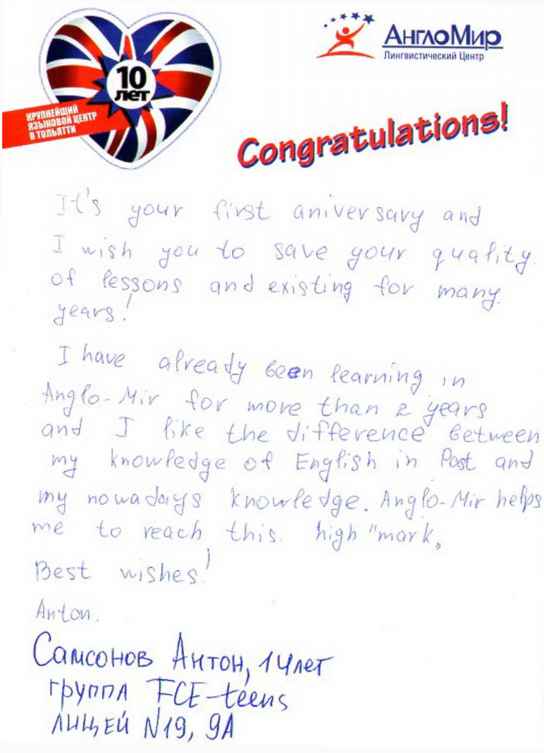 10
лет
КРУПНЕЙШИЙ
ЯЗЫКОВОЙ ЦЕНТР
В ТОЛЬЯТТИ
АнглоМир
Лингвистический Центр
Congratulations!
It's your first aniversary and
I wish you to save your quality
of lessons and existing for many
years!
I have already been learning in
Anglo-Mir for more than 2 years
and I like the difference between
my knowledge of English in Past and
my nowadays knowledge. Anglo-Mir helps
me to reach this high "mark„
Best wishes!
Anton.
Самсонов Антон, 14 лет
группа FCE-teens
лицей N19, 9А